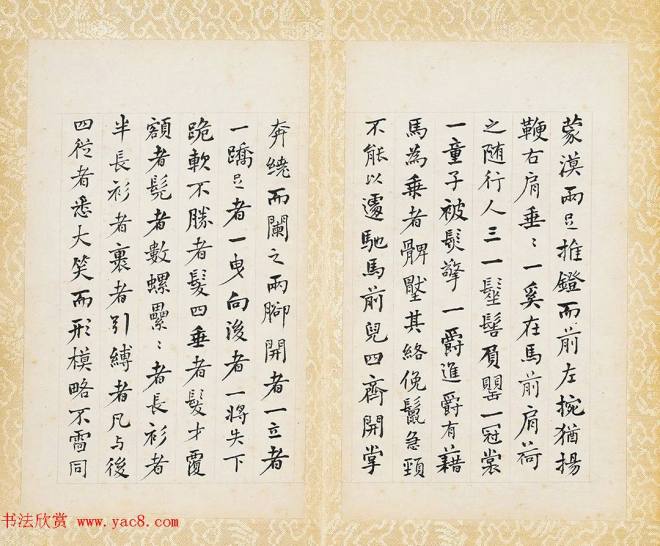 蒙漠兩足推鐙而前左捥猶揚
鞭右肩垂〻一奚在馬前肩荷
之随行人三一髽髻負罌一冠裳
一童子被髟擎一爵進爵有藉
馬為乗者髀壓其絡俛鬣急頸
不能以遽馳馬前兒四齊開掌
奔繞而闌之兩腳開者一立者
一蹻足者一曳向後者一將失下
跪軟不勝者髮四垂者髮才覆
額者髡者數螺纍〻者長衫者
半長衫者裹者引縛者凡與後
四位者悉大笑而形模略不雷同
书法欣赏 www.yac8.com